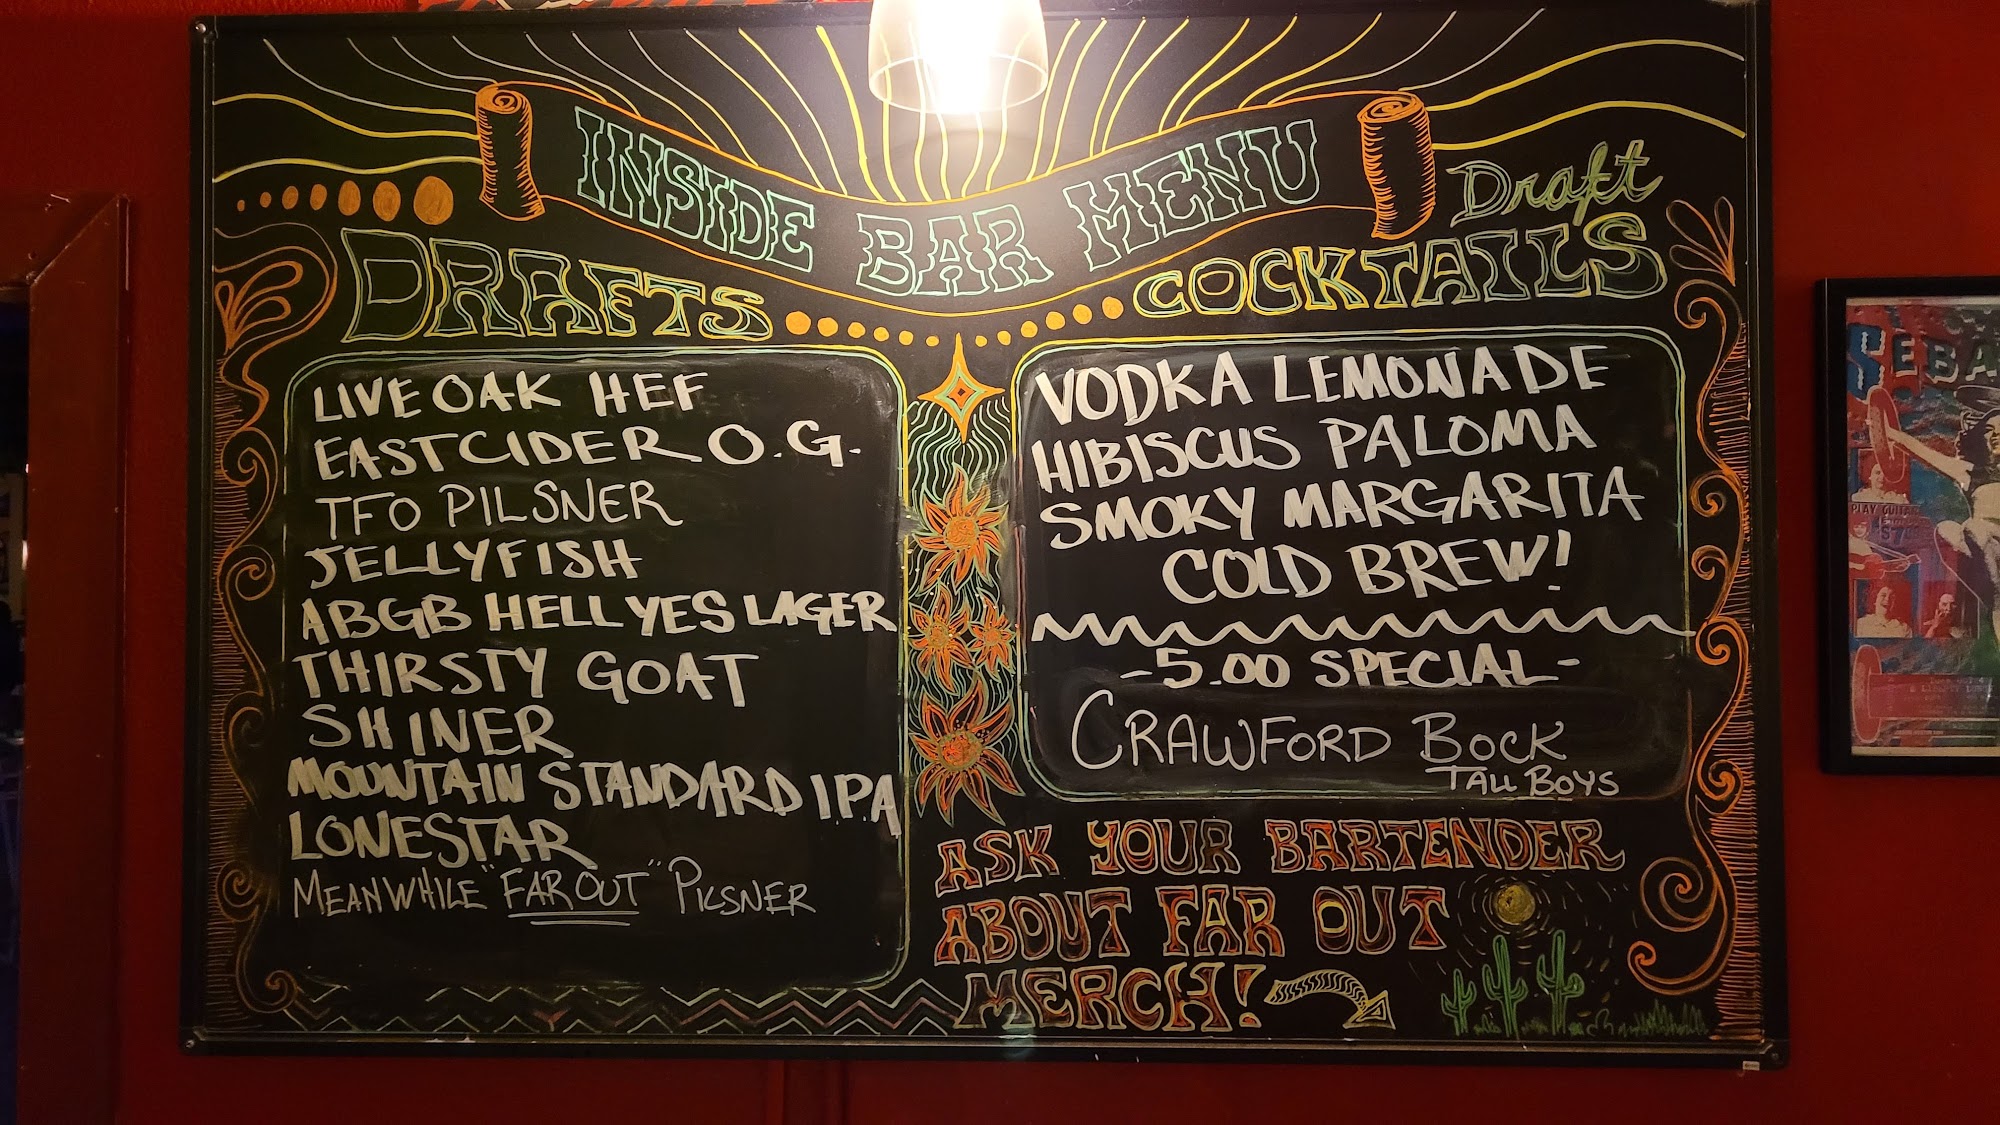 INSIDE BAR MENU
DRAFTS
LIVE OAK HEF
EASTCIDER O.G.
TFO PILSNER
JELLYFISH
ABGB HELL YES LAGER
THIRSTY GOAT
SHINER
MOUNTAIN STANDARD IPA
LONESTAR
MEANWHILE "FAR OUT" PILSNER
Draft
COCKTAILS
VODKA LEMONADE
HIBISCUS PALOMA
SMOKY MARGARITA
COLD BREW!
-5.00 SPECIAL-
CRAWFORD BOCK
TALL BOYS
ASK YOUR BARTENDER
ABOUT FAR OUT
MERCH!
SEBA
PLAY GUITAR